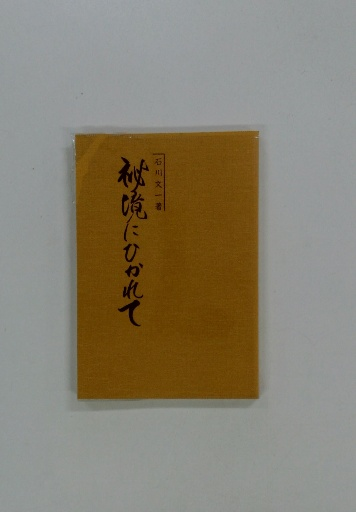 石川文一著
秘境にひかれて